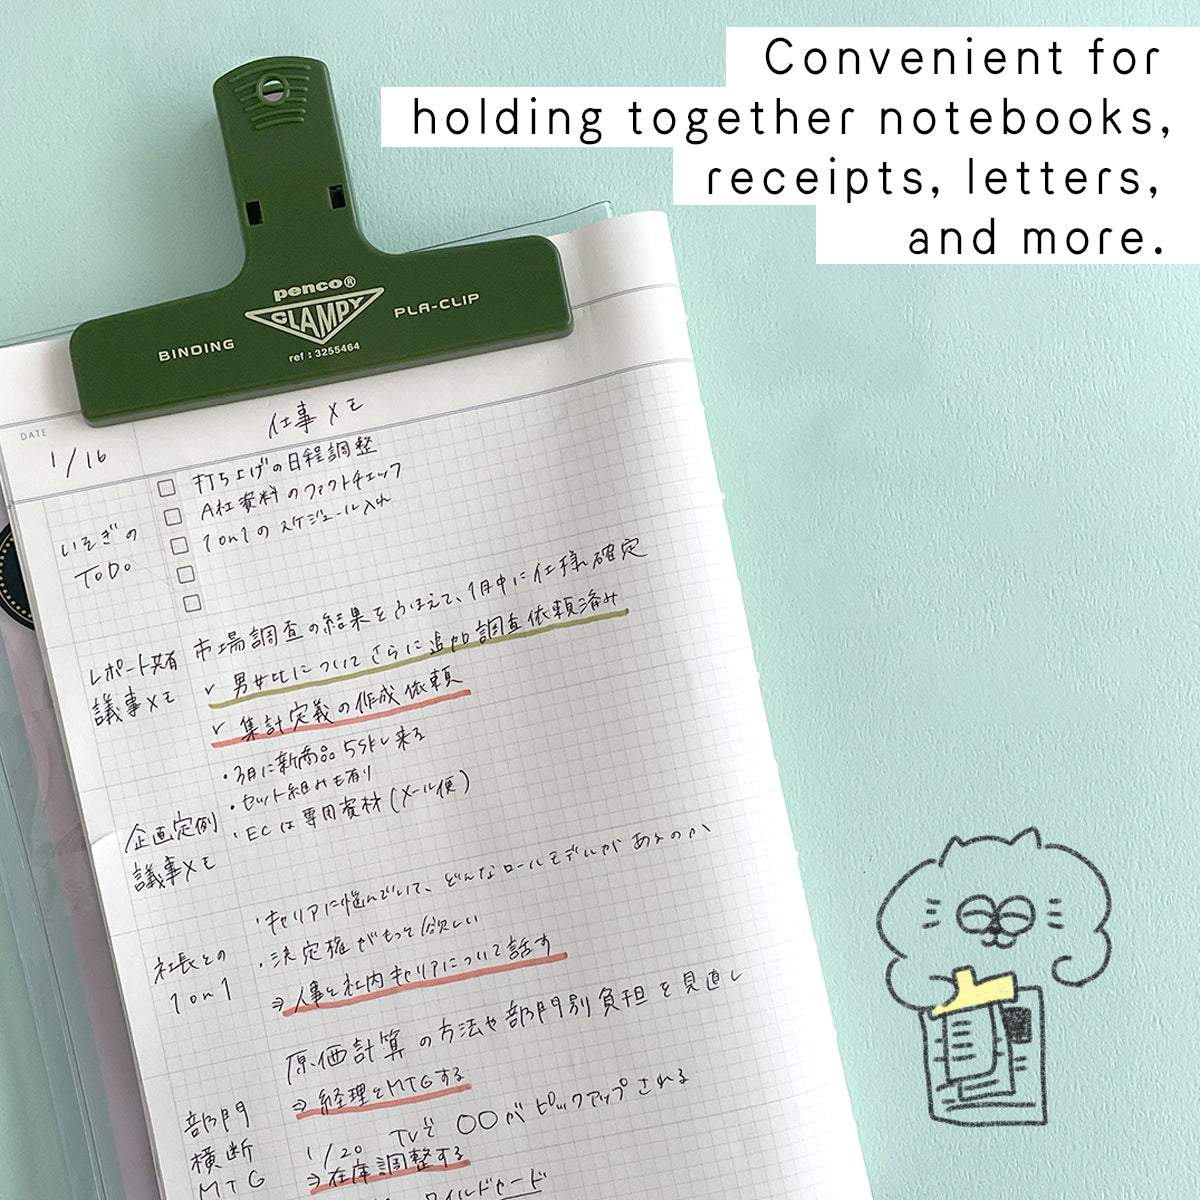 Convenient for
holding together notebooks,
receipts, letters,
and more.
penco®
CLAMPY
BINDING
PLA-CLIP
ref : 3255464
DATE
1/16
仕事メモ
いそぎの
ToDo
打ち上げの日程調整
A社資料のファクトチェック
1on1のスケジュール入れ
レポート共有
議事メモ
市場調査の結果をふまえて、1月中に仕様確定
✓ 男女比についてさらに追加調査依頼済み
✓ 集計定義の作成依頼
・3月に新商品5SKU来る
・セット組みも有り
・ECは専用資材(メール便)
企画定例
議事メモ
社長との
1on1
・キャリアに悩んでいて、どんなロールモデルがあるのか
・決定権がもっと欲しい
⇒人事と社内キャリアについて話す
部門
横断
MTG
原価計算の方法や部門別負担を見直し
⇒経理とMTGする
1/20 TVで〇〇がピックアップされる
⇒在庫調整する